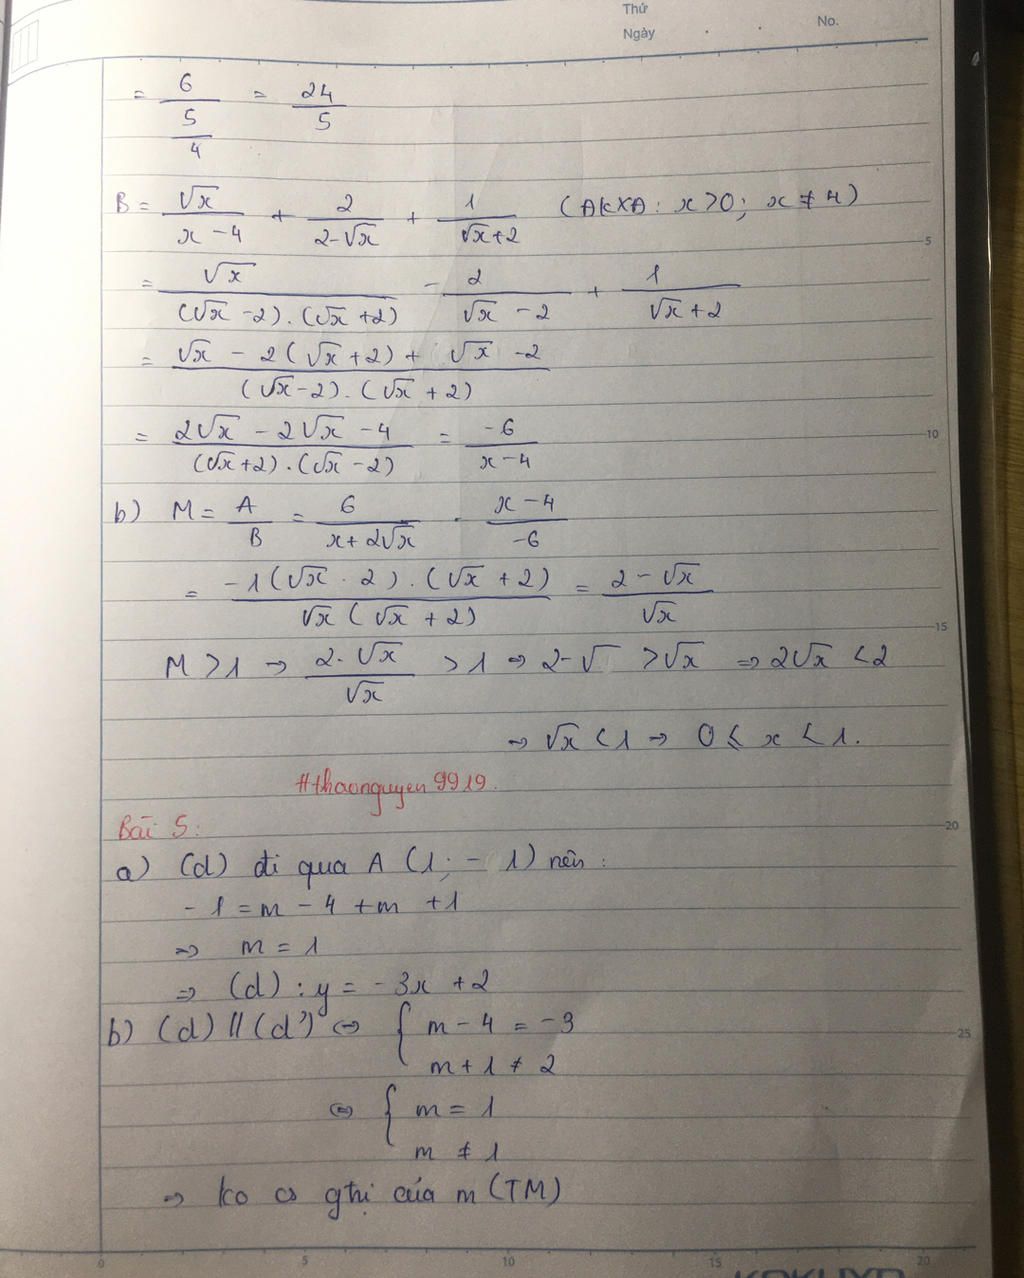 Thứ
Ngày . .
No.
= 6/(5/4) = 24/5
B = √x/(x-4) + 2/(2-√x) + 1/(√x+2) (ĐKXĐ: x>0; x≠4)
= √x/((√x-2).(√x+2)) - 2/(√x-2) + 1/(√x+2)
= (√x - 2(√x+2) + √x -2)/((√x-2).(√x+2))
= (2√x - 2√x - 4)/((√x+2).(√x-2)) = -6/(x-4)
b) M = A/B = 6/(x+2√x) . (x-4)/-6
= -1(√x - 2).(√x+2)/(√x(√x+2)) = (2-√x)/√x
M >1 → (2-√x)/√x >1 ⇒ 2-√ >√x ⇒ 2√x <2
⇒ √x <1 ⇒ 0 ≤ x < 1.
#thaonguyen9919.
Bài 5:
a) (d) đi qua A (1; -1) nên:
-1 = m - 4 + m + 1
⇒ m = 1
⇒ (d) : y = -3x + 2
b) (d) // (d') ⇔ { m - 4 = -3
m + 1 ≠ 2
⇔ { m = 1
m ≠ 1
⇒ ko cs gtrị của m (TM)
5
10
15
20
25
0 5 10 15 20
KOKUYO